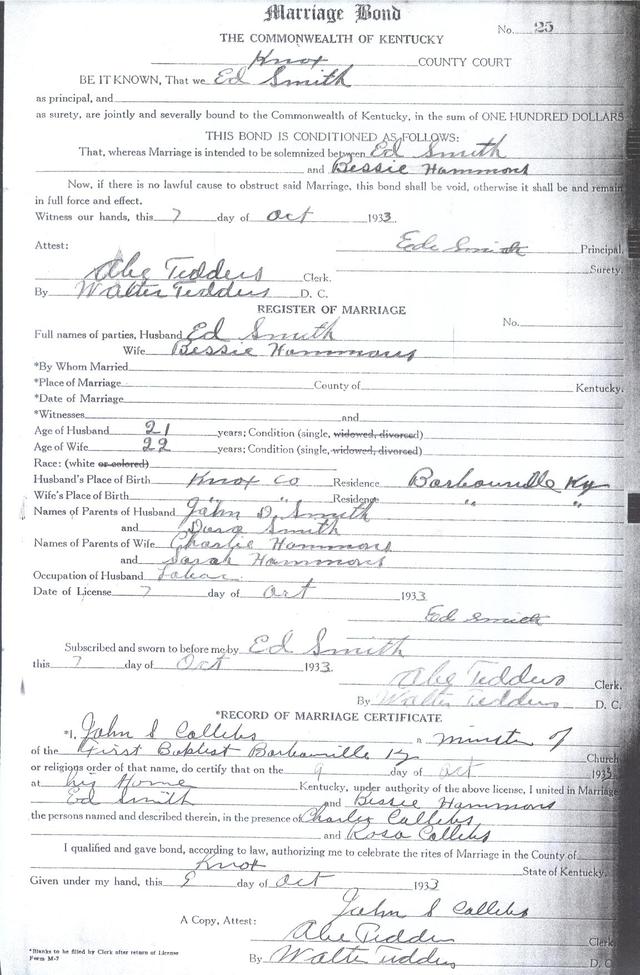 Marriage Bond
No. 25
THE COMMONWEALTH OF KENTUCKY
Knox COUNTY COURT
BE IT KNOWN, That we Ed Smith
as principal, and
as surety, are jointly and severally bound to the Commonwealth of Kentucky, in the sum of ONE HUNDRED DOLLARS
THIS BOND IS CONDITIONED AS FOLLOWS:
That, whereas Marriage is intended to be solemnized between Ed Smith
and Bessie Hammons
Now, if there is no lawful cause to obstruct said Marriage, this bond shall be void, otherwise it shall be and remain
in full force and effect.
Witness our hands, this 7 day of Oct 1933.
Ed Smith Principal.
Attest:
Surety.
Abe Tedders Clerk.
By Walter Tedders D. C.
REGISTER OF MARRIAGE
No.
Full names of parties, Husband Ed Smith
Wife Bessie Hammons
*By Whom Married
*Place of Marriage County of Kentucky.
*Date of Marriage
*Witnesses and
Age of Husband 21 years; Condition (single, widowed, divorced)
Age of Wife 22 years; Condition (single, widowed, divorced)
Race: (white or colored)
Husband's Place of Birth Knox Co Residence Barbourville Ky
Wife's Place of Birth " " Residence " "
Names of Parents of Husband John D. Smith
and Dora Smith
Names of Parents of Wife Charlie Hammons
and Sarah Hammons
Occupation of Husband Labor
Date of License 7 day of Oct 1933
Ed Smith
Subscribed and sworn to before me by Ed Smith
this 7 day of Oct 1933.
Abe Tedders Clerk.
By Walter Tedders D. C.
*RECORD OF MARRIAGE CERTIFICATE
*I, John S Collibs a Minister of
of the First Baptist Barbourville Ky Church
or religious order of that name, do certify that on the 9 day of Oct 1933
at his Home Kentucky, under authority of the above license, I united in Marriage
Ed Smith and Bessie Hammons
the persons named and described therein, in the presence of Charley Collibs
and Rosa Collibs
I qualified and gave bond, according to law, authorizing me to celebrate the rites of Marriage in the County of
Knox State of Kentucky.
Given under my hand, this 9 day of Oct 1933
John S Collibs
A Copy, Attest:
Abe Tedders Clerk
By Walter Tedders D. C.
*Blanks to be filed by Clerk after return of License
Form M-7